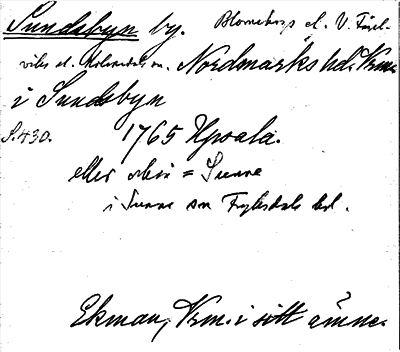 Sundsbyn by. Blomskogs el. V. Fågel-
viks el. Holmedals sn. Nordmarks hd. Vrml.
i Sundsbyn
S. 430. 1765 Upsala.
eller = Sunne
i Sunne sn Fryksdals hd.
Ekman, Vrm. i sitt ämne